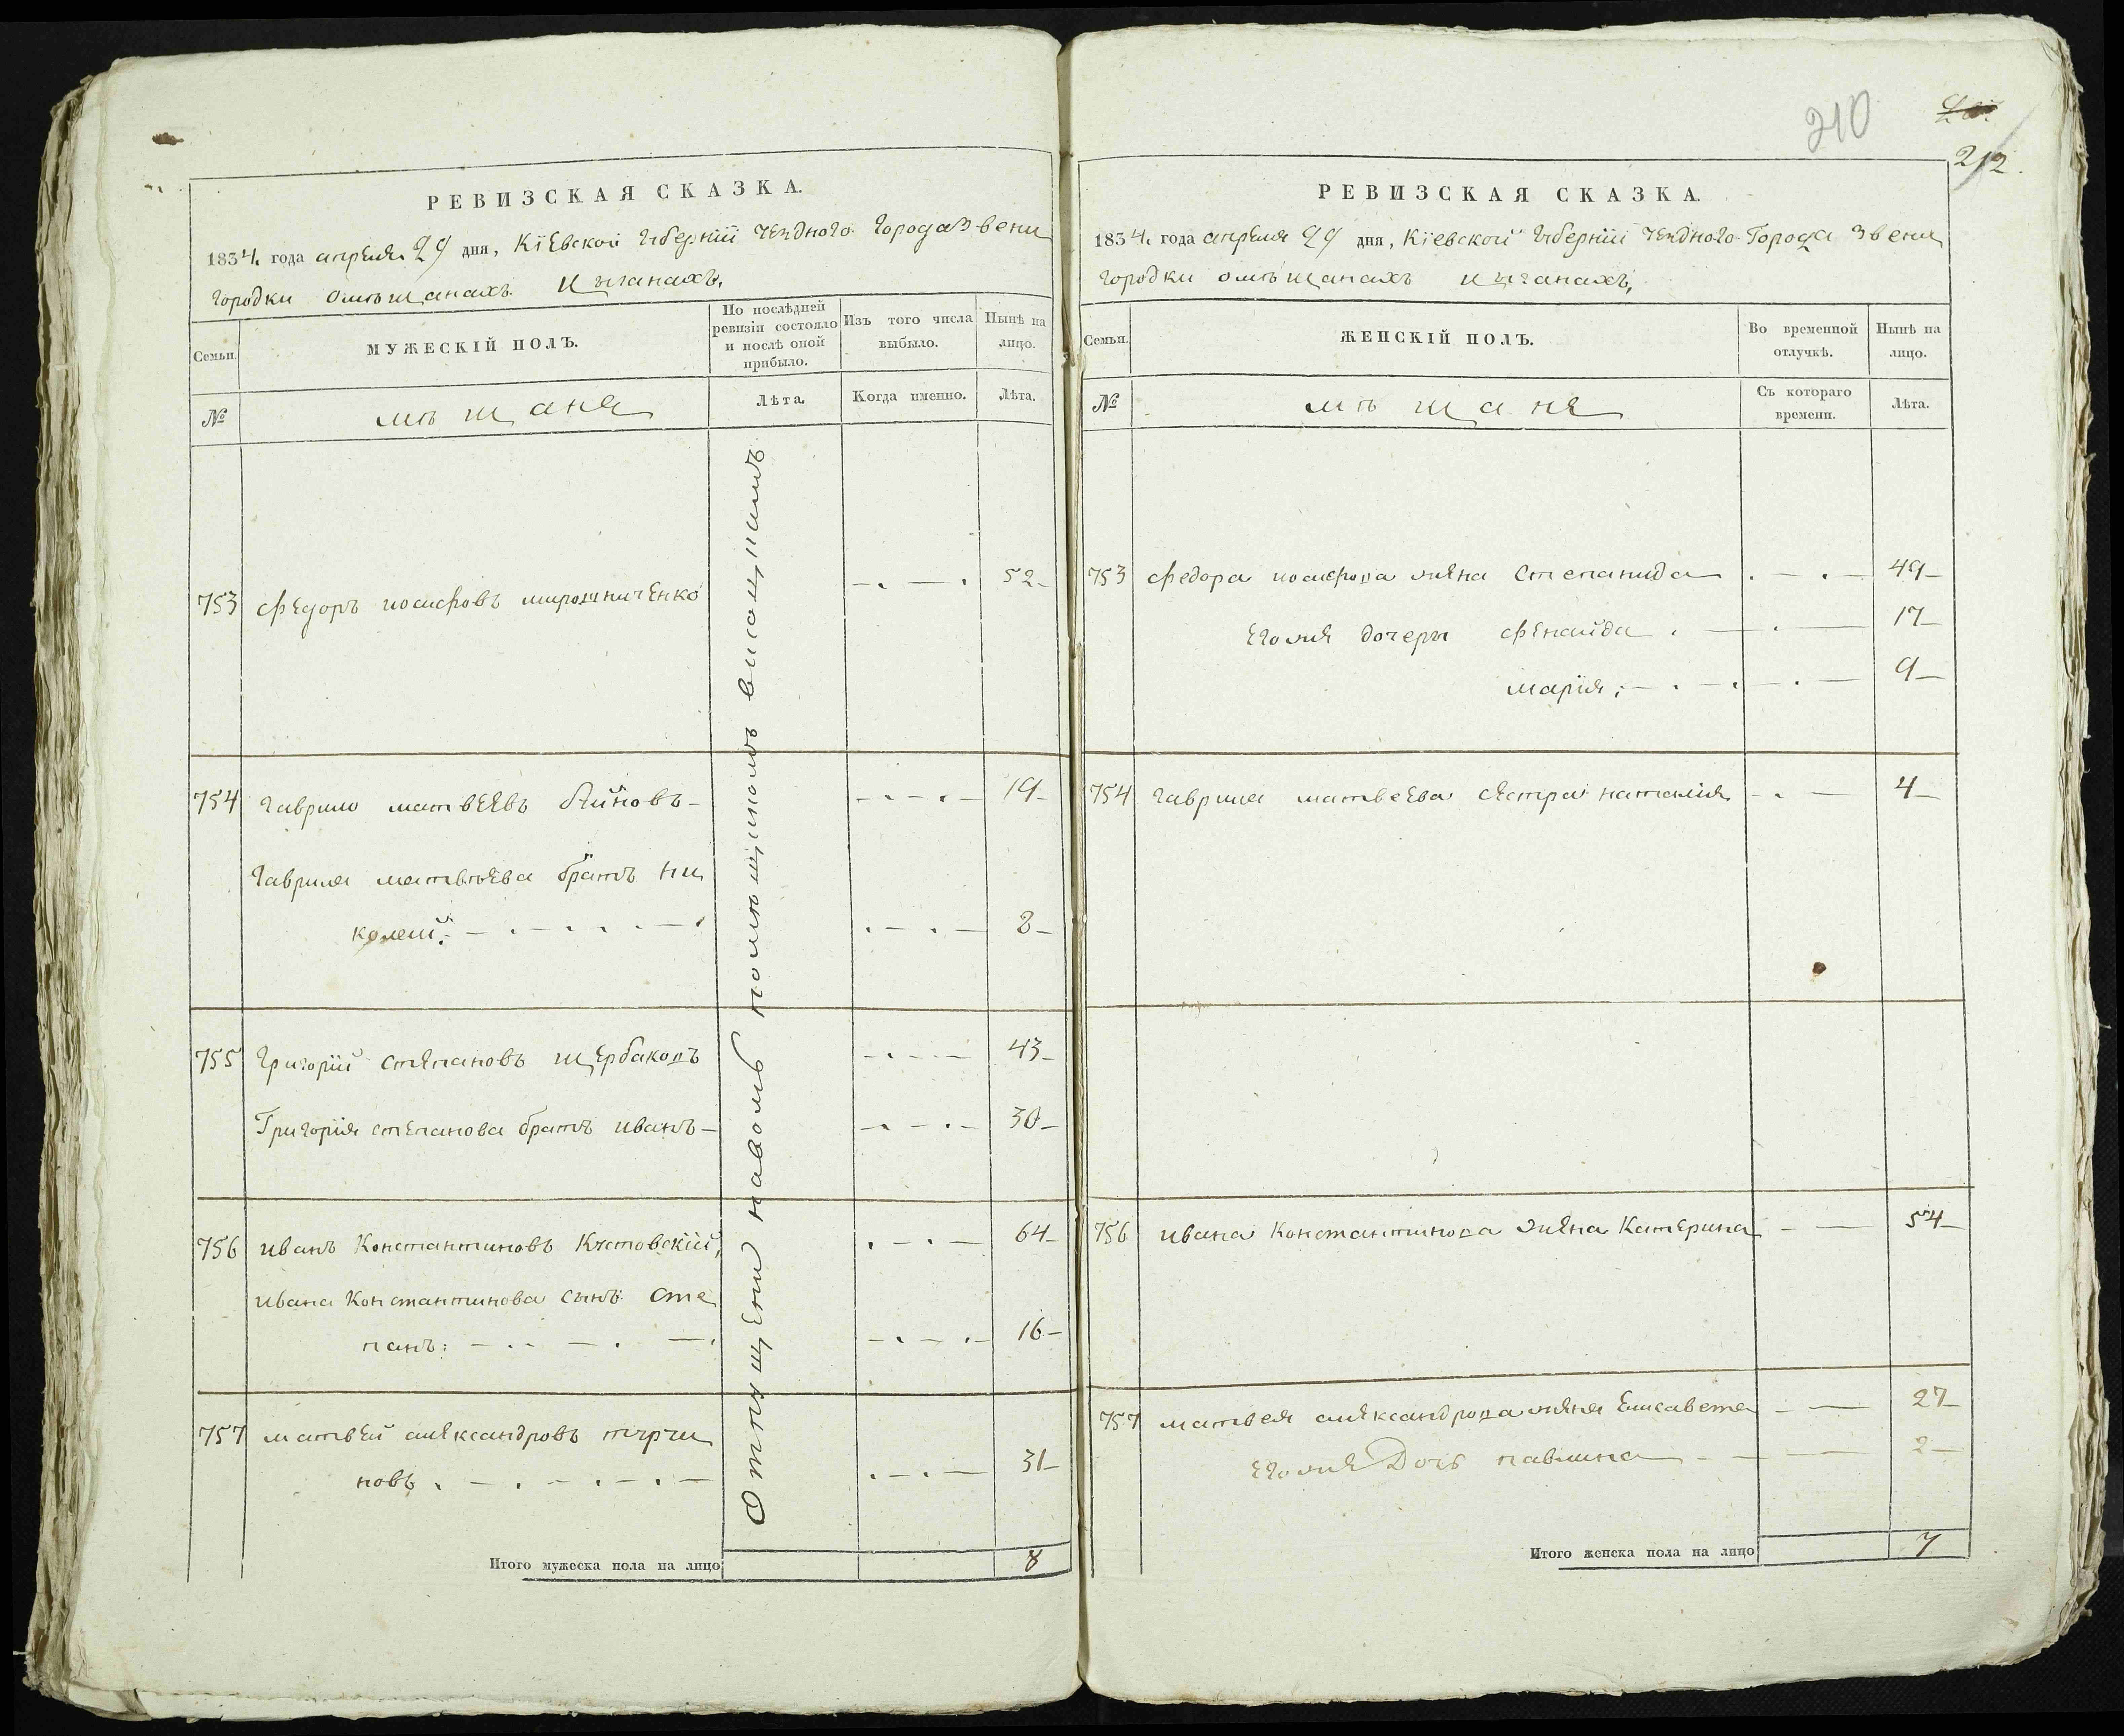 210
212.
РЕВИЗСКАЯ СКАЗКА.
1834. года апреля 29 дня, Кїевской губернїи уездного города звени
городки омѣщанахъ ицыганахъ,
Семьи.
МУЖЕСКІЙ ПОЛЪ.
По послѣдней ревизіи состояло и послѣ оной прибыло.
Изъ того числа выбыло.
Нынѣ на лицо.
№
мѣщане
Лѣта.
Когда именно.
Лѣта.
753 федоръ иосифовъ мирошниченко 52
754 гаврило матвеевъ 19
гаврила матвѣева братъ ни
колай: 2
755 Григорїй степановъ щербаковъ 43
Григорїя степанова братъ иванъ 30
756 иванъ Константиновъ Кустовскїй, 64
ивана Константинова сынъ сте
панъ: 16
757 матвей александровъ турчи
новъ. 31
Отпущени наволь помещикомъ
Итого мужеска пола на лицо 8
РЕВИЗСКАЯ СКАЗКА.
1834. года апреля 29 дня, Кїевской губернїи уездного Города звени
городки омѣщанахъ ицыганахъ,
Семьи.
ЖЕНСКІЙ ПОЛЪ.
Во временной отлучкѣ.
Нынѣ на лицо.
№
мѣщане
Съ котораго времени.
Лѣта.
753 федора иосифова жена степанида 49
егоже дочери фенаида 17
марїя; 9
754 гаврила матвеева сестра наталїя 4
756 ивана Константинова жена Катерина 54
757 матвея александрова жена Елисавета 27
егоже Дочь павлина 2
Итого женска пола на лицо 7